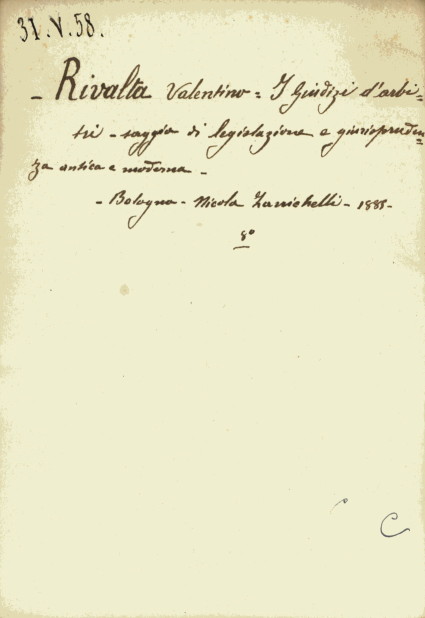 31.V.58.
- Rivalta Valentino = I Giudizi d'arbi=
tri - saggio di legislazione e giurispruden=
za antica e moderna -
- Bologna - Nicola Zanichelli - 1885 -
8°
C